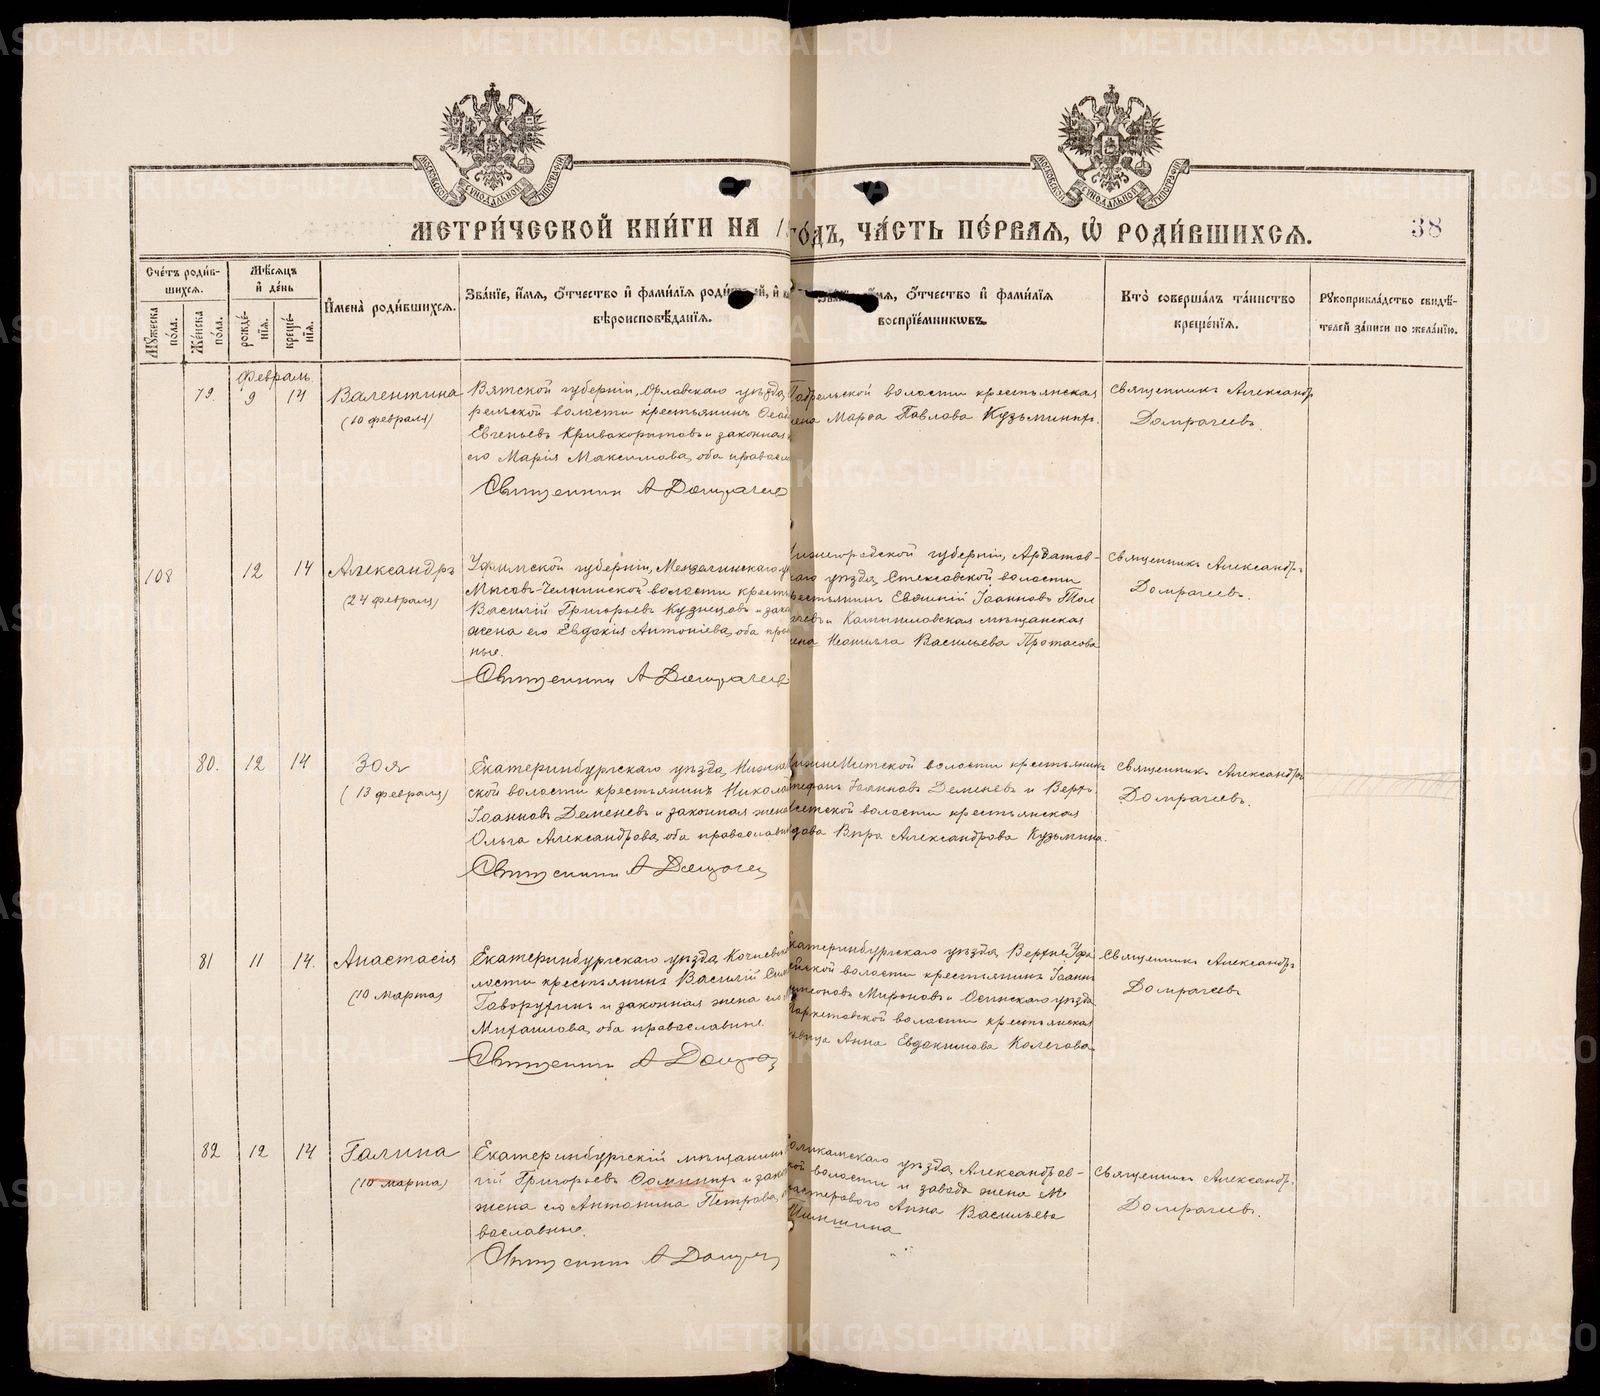 МЕТРИ́ЧЕСКОЙ КНИ́ГИ НА 1
ГО́ДЪ, ЧА́СТЬ ПЕ́РВАѦ, Ѽ РОДИ́ВШИХСѦ.
38
Сче́тъ роди́в-
шихсѧ.
Мѣ́сѧцъ
и҆ де́нь
И҆мена̀ роди́вшихсѧ.
Зва́нїе, и҆́мѧ, ѻ҆́тчество и҆ фами́лїѧ
вѣроисповѣ́данїѧ.
и҆́мѧ, ѻ҆́тчество и҆ фами́лїѧ
воспрїе́мниковъ.
Кто̀ соверша́лъ та́инство
креще́нїѧ.
Рꙋкоприкла́дство свидѣ́-
телей за́писи по жела́нїю.
Мꙋ́жеска
по́ла.
Же́нска
по́ла.
рожде́-
нїѧ.
креще́-
нїѧ.
Февраль
79. 9 14 Валентина
(10 февраля)
Вятской губернiи, Орловскаго уѣзда,
рельской волости крестьянинъ
Евгеньевъ Кривокорытовъ и законная
его Марiя Максимова, оба правосл
Священник А Домрачев
волости крестьянская
Марѳа Павлова Кузьминых.
Священникъ Александръ
Домрачевъ.
108 12 14 Александръ
(24 февраля)
Уфимской губернiи, Мензелинскаго у
Мысово-Челнинской волости кресть
Василiй Григорьевъ Кузнецовъ и зако
жена его Евдокiя Антонiева, оба пра
ные.
Священник А Домрачев
Нижегородской губернiи, Ардатов-
скаго уѣзда, Стексовской волости
крестьянинъ Евѳимiй Iоанновъ
и Камышловская мѣщанская
жена Неонилла Васильева Протасова
Священникъ Александръ
Домрачевъ.
80. 12 14 Зоя
(13 февраля)
Екатеринбургскаго уѣзда,
ской волости крестьянинъ Никола
Iоанновъ Деменевъ и законная жена
Ольга Александрова, оба православн
Священник А Домрачев
волости крестьянинъ
Стефанъ Iоанновъ Деменевъ и Верх-
Исетской волости крестьянская
вдова Вѣра Александрова Кузьмина.
Священникъ Александръ
Домрачевъ.
81 11 14. Анастасiя
(10 марта)
Екатеринбургскаго уѣзда,
лости крестьянинъ Василiй
и законная жена его
Михаилова, оба православные.
Священник А Домрач
Екатеринбургскаго уѣзда, Верхне-Уфа
лейской волости крестьянинъ Iоаннъ
Симеоновъ Мироновъ и Осинскаго уѣзда
волости крестьянская
дѣвица Анна Евдокимова Колегова
Священникъ Александръ
Домрачевъ
82 12 14 Галина
(10 марта)
Екатеринбургскiй мѣщанинъ
гiй Григорьевъ Ѳоминыхъ и закон
жена его Антонина Петрова,
вославные.
Священник А Домрач
Соликамскаго уѣзда, Александров-
ской волости и завода жена
мастероваго Анна Васильева
Священникъ Александръ
Домрачевъ.
METRIKI.GASO-URAL.RU